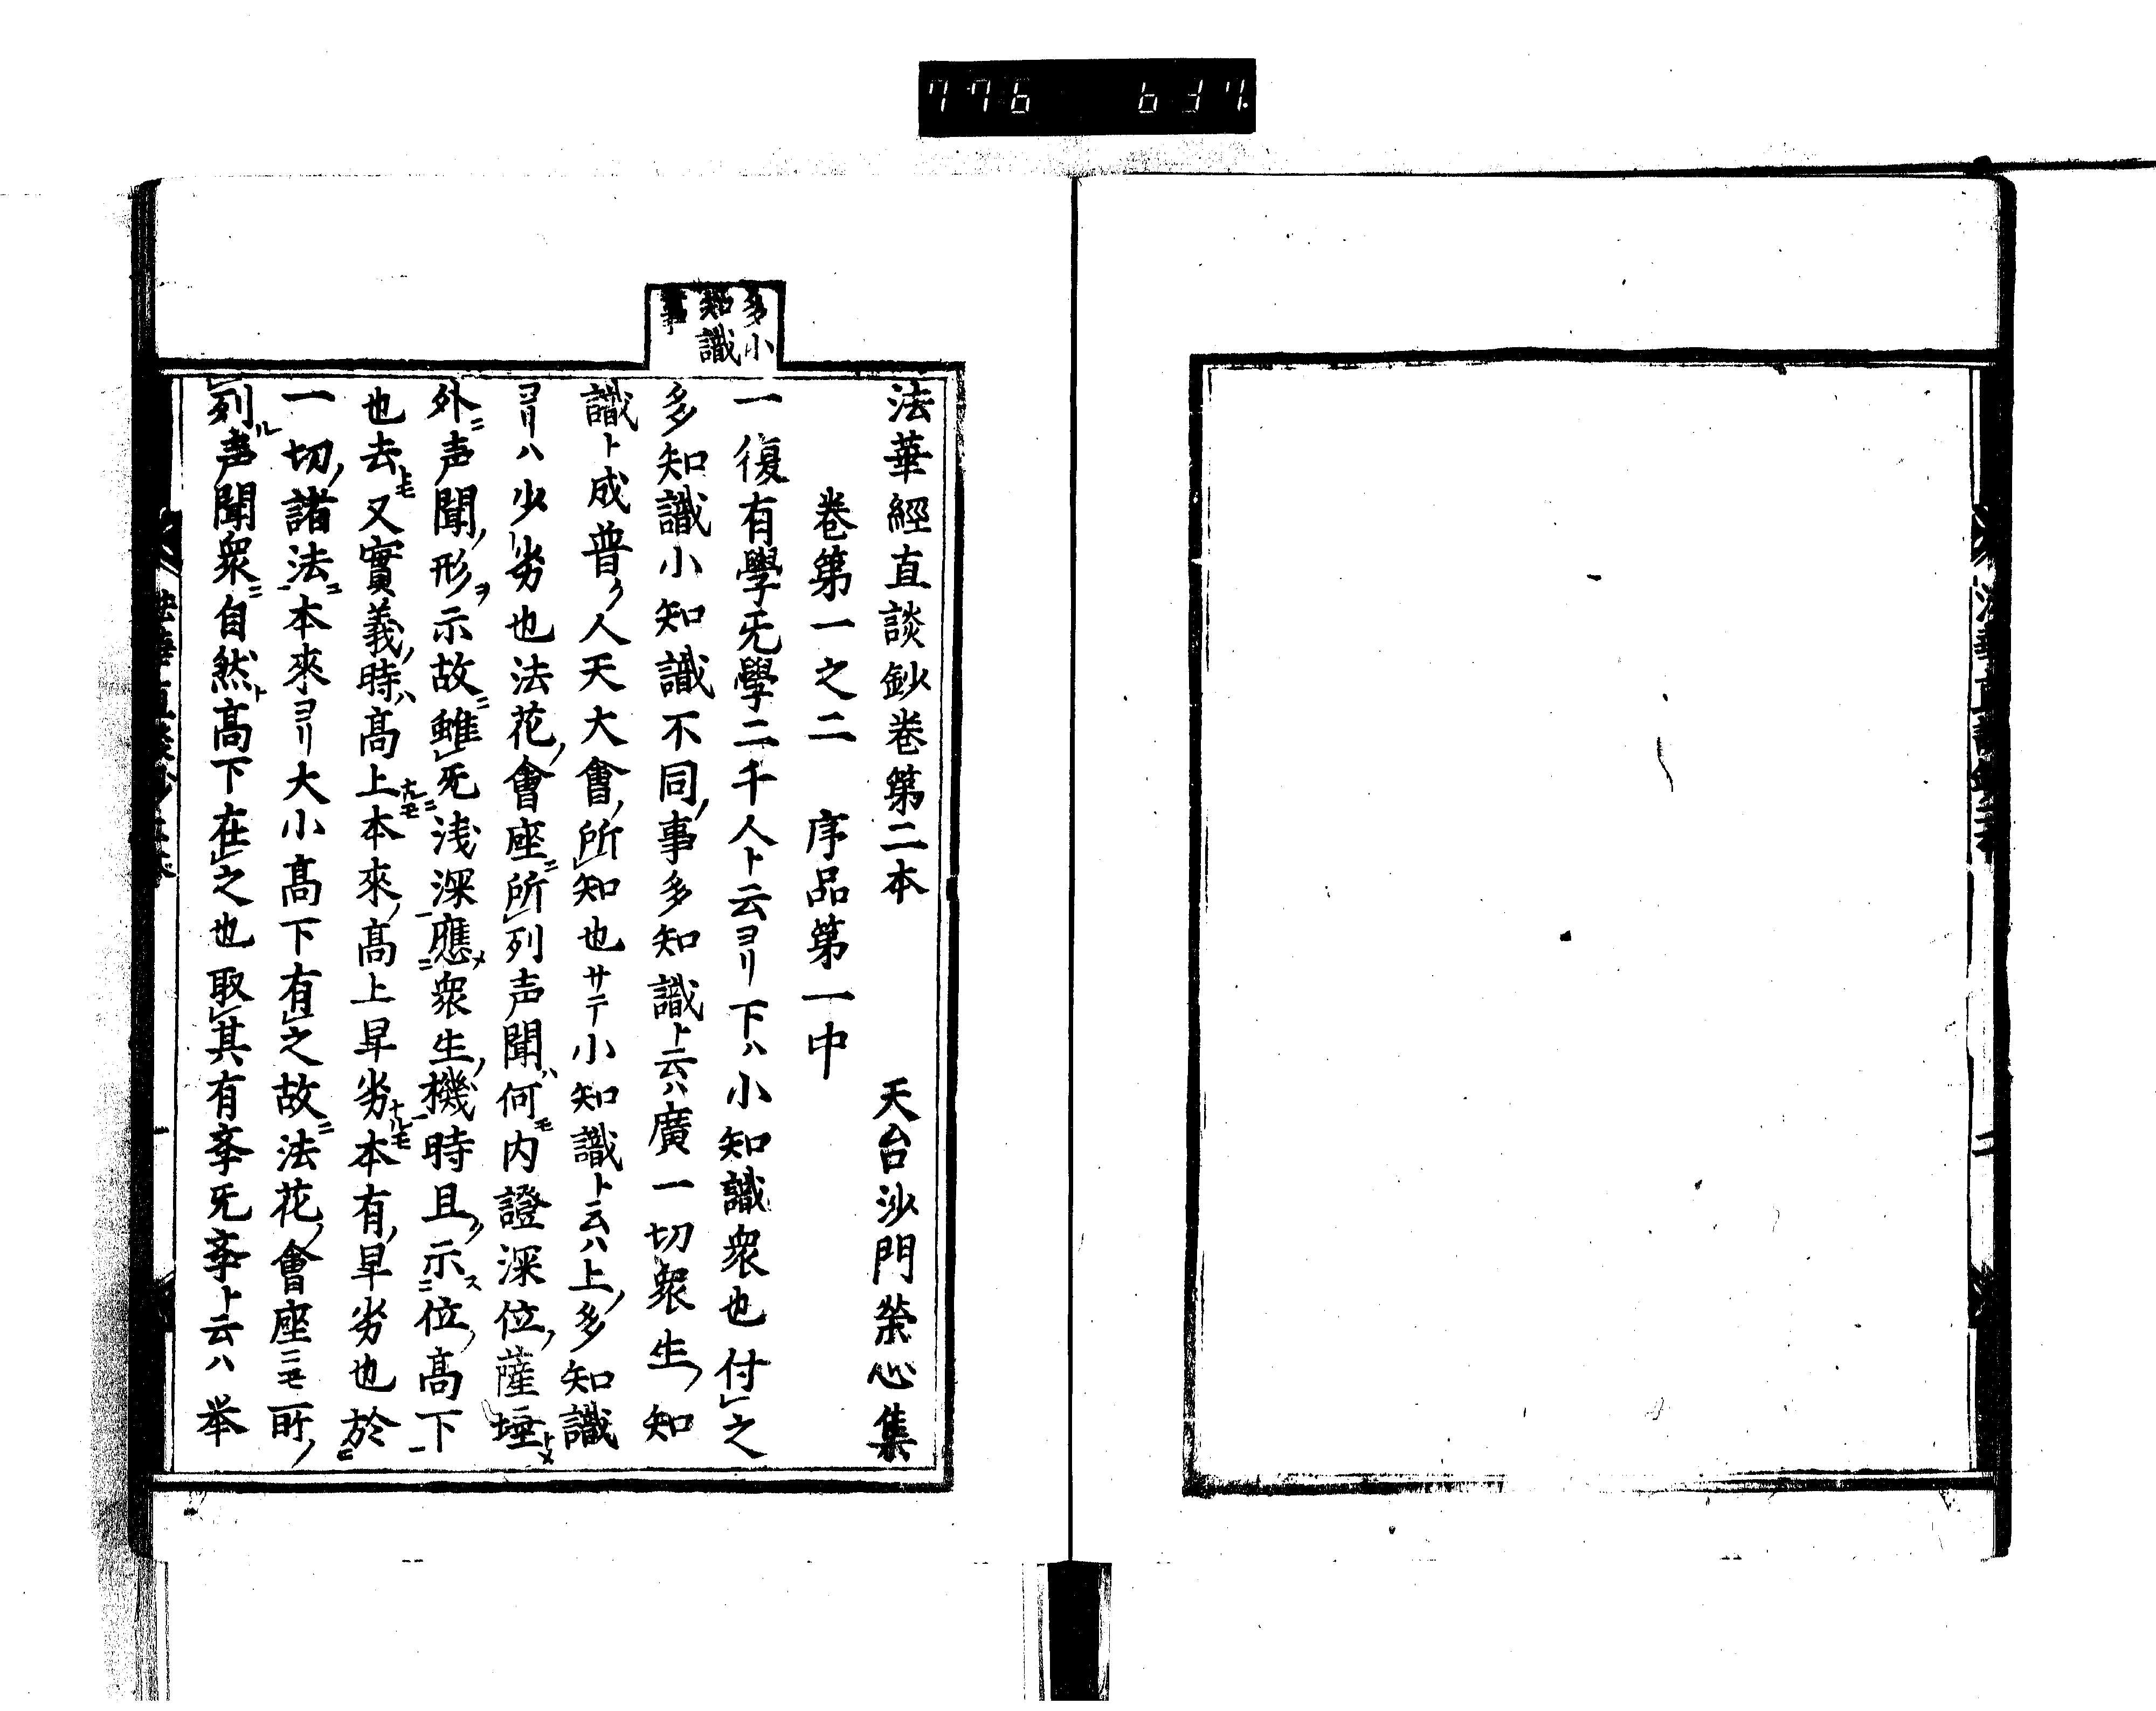 776 637
多小
知識
事
法華經直談鈔卷第二本 天台沙門榮心集
卷第一之二 序品第一中
一復有學无學二千人ト云ヨリ下ハ小知識衆也付之
多知識小知識不同ノ事多知識ト云ハ廣一切衆生ノ知
識ト成普ク人天大會ノ所知也サテ小知識ト云ハ上ノ多知識
ヨリハ少劣也法花ノ會座ニ所列声聞ハ何モ内證深位ノ薩埵トメ
外ニ声聞ノ形ヲ示故ニ雖无浅深應衆生ノ機時且ク示ス位ノ高下
也去トモ又實義ノ時ハ高上ナルモ本來ノ高上早劣ナルモ本有ノ早劣也於
一切ノ諸法ニ本來ヨリ大小高下有之故ニ法花ノ會座ニモ所ノ
列ル声聞衆ニ自然ト高下在之也取其有斈无斈ト云ハ举